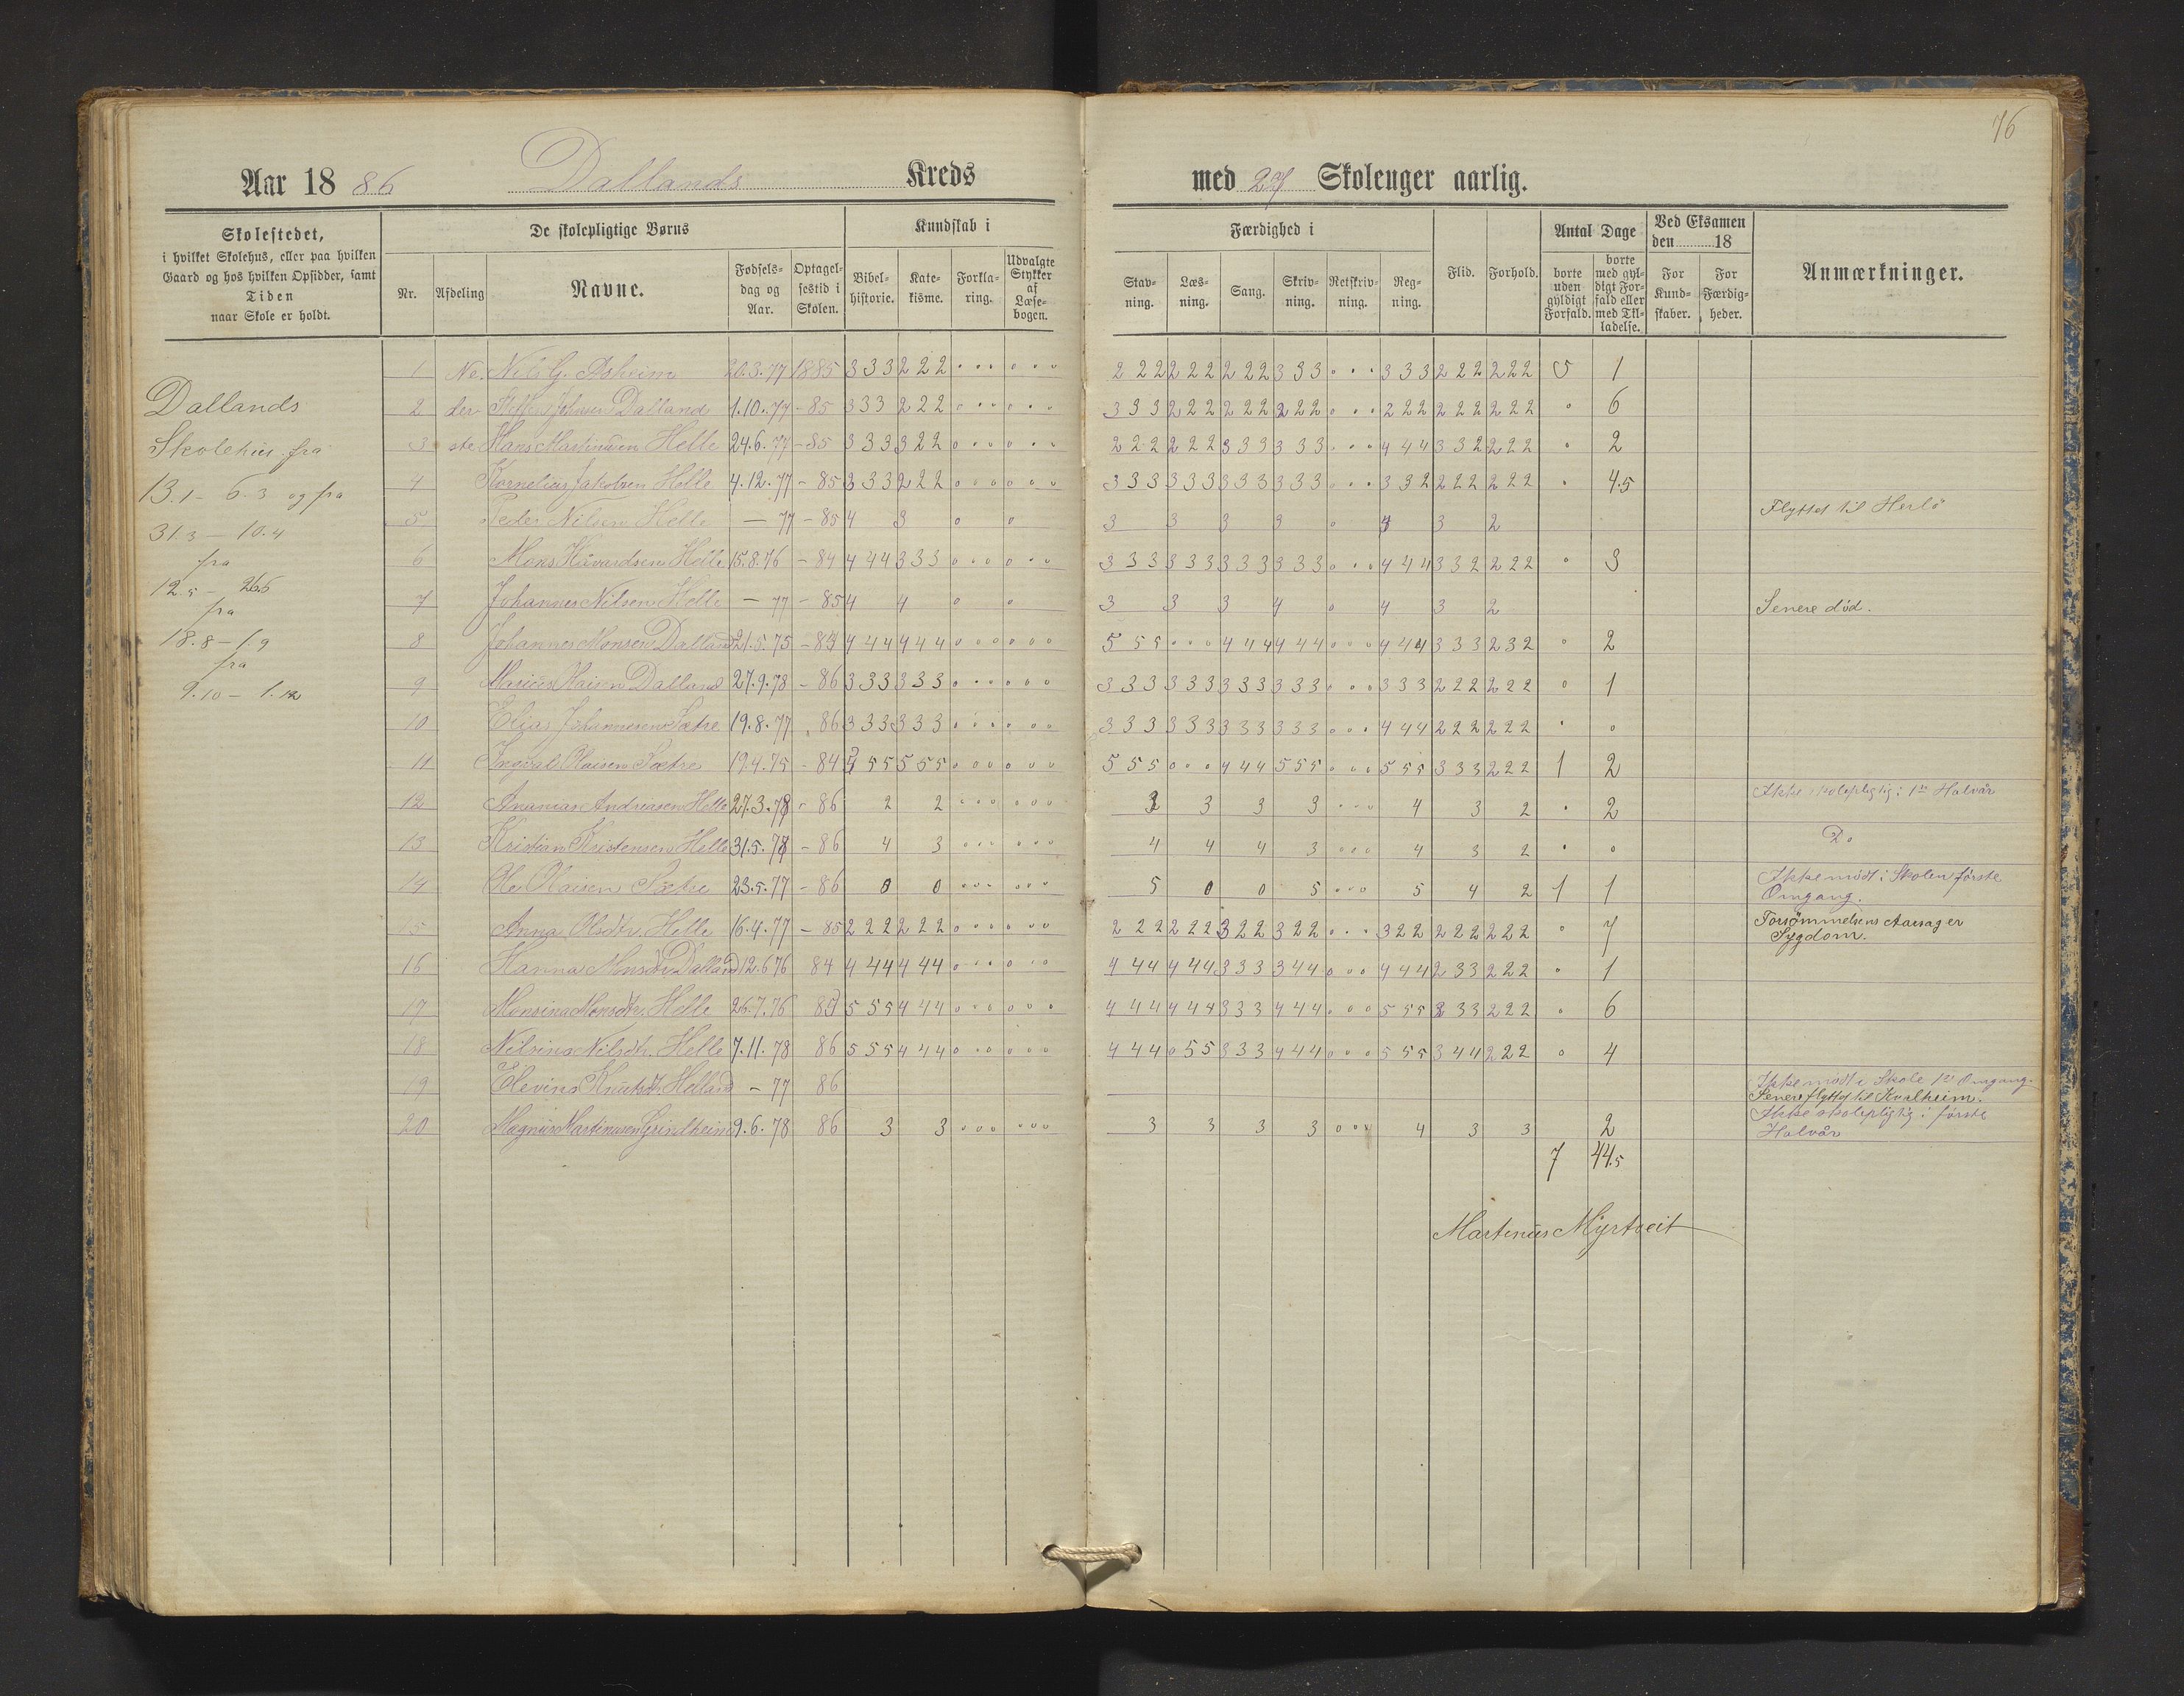 76
Aar 1886 Dallands Kreds med 27 Skoleuger aarlig.
Skolestedet,
i hvilket Skolehus, eller paa hvilken
Gaard og hos hvilken Opsidder, samt
Tiden
naar Skole er holdt.
De skolepligtige Børns
Nr. Afdeling Navne. Fødselsdag og Aar. Optagelsestid i Skolen.
Kundskab i
Bibelhistorie. Katekisme. Forklaring. Udvalgte Stykker af Læsebogen.
Færdighed i
Stavning. Læsning. Sang. Skrivning. Retskrivning. Regning.
Flid. Forhold.
Antal Dage
borte uden gyldigt Forfald. borte med gyldigt Forfald eller med Tilladelse.
Ved Eksamen den 18
For Kundskaber. For Færdigheder.
Anmærkninger.
Dallands
Skolehus fra
13.1 - 6.3 og fra
31.3 - 10.4
fra
12.5 - 26.5
fra
18.8 - 1.9
fra
9.10 - 1.12
1 Ne. Nils G. Asheim 20.3.77 1885 333 222 ... ... 222 222 222 333 ... 333 222 222 5 1
2 der Johnsen Dalland 1.10.77 - 85 333 222 ... ... 333 222 222 222 ... 222 222 222 . 6
3 ste Hans Martinusen Helle 24.6.77 - 85 333 322 ... ... 222 222 333 333 ... 444 332 222 . 2
4 Kornelius Jakobsen Helle 4.12.77 - 85 333 222 ... ... 333 333 333 333 ... 332 222 222 . 4.5
5 Peder Nilsen Helle - 77 - 85 4 3 o o 3 3 3 3 o 4 3 2 Flyttet til Herlö
6 Mons Håvardsen Helle 15.8.76 - 84 444 333 ... ... 333 333 333 333 ... 444 332 222 . 3
7 Johannes Nilsen Helle - 77 - 85 4 4 o o 3 3 3 4 o 4 3 2 Senere död.
8 Johannes Monsen Dalland 21.5.75 - 84 444 444 ... ... 555 ... 444 444 ... 444 333 232 . 2
9 Dalland 27.9.78 - 86 333 333 ... ... 333 333 333 333 ... 333 222 222 o 1
10 Elias Johannesen Sætre 19.8.77 86 333 333 ... ... 333 333 333 333 ... 444 222 222 . o
11 Ingval Olaisen Sætre 19.4.75 - 84 555 555 ... ... 555 ... 444 555 ... 555 333 222 1 2
12 Ananias Andreasen Helle 27.3.78 - 86 2 2 ... ... 3 3 3 3 ... 4 3 2 . 2 Ikke skolepligtig i 1ste Halvår
13 Kristian Kristensen Helle 31.5.78 - 86 4 3 ... ... 4 4 4 3 ... 4 3 2 . o Do
14 Ole Olaisen Sætre 23.5.77 - 86 0 0 ... ... 5 0 0 5 ... 5 4 2 1 1 Ikke mödt i Skolen förste
Omgang.
15 Anna Olsdtr. Helle 16.4.77 - 85 222 222 ... ... 222 222 322 322 ... 322 222 222 o 7 Forsömmelsens Aarsag er
Sygdom.
16 Hanna Monsdtr Dalland 12.6.76 84 444 444 ... ... 444 444 333 344 ... 444 233 222 . 1
17 Monsina Monsdtr. Helle 26.7.76 84 555 444 ... ... 444 444 333 444 ... 555 233 222 . 6
18 Nilsina Nilsdtr. Helle 7.11.78 86 555 444 ... ... 444 055 333 444 ... 555 344 222 o 4
19 Elevina Knutsdt. Helland - 77 86 Ikke mödt i Skole 1ste Omgang.
Senere flyttet til Kvalheim.
20 Magnus Martinusen Grindheim 9.6.78 86 3 3 ... ... 3 3 3 3 ... 4 3 3 2 Ikke skolepligtig i förste
Halvår
7 44.5
Martinus Myrtveit